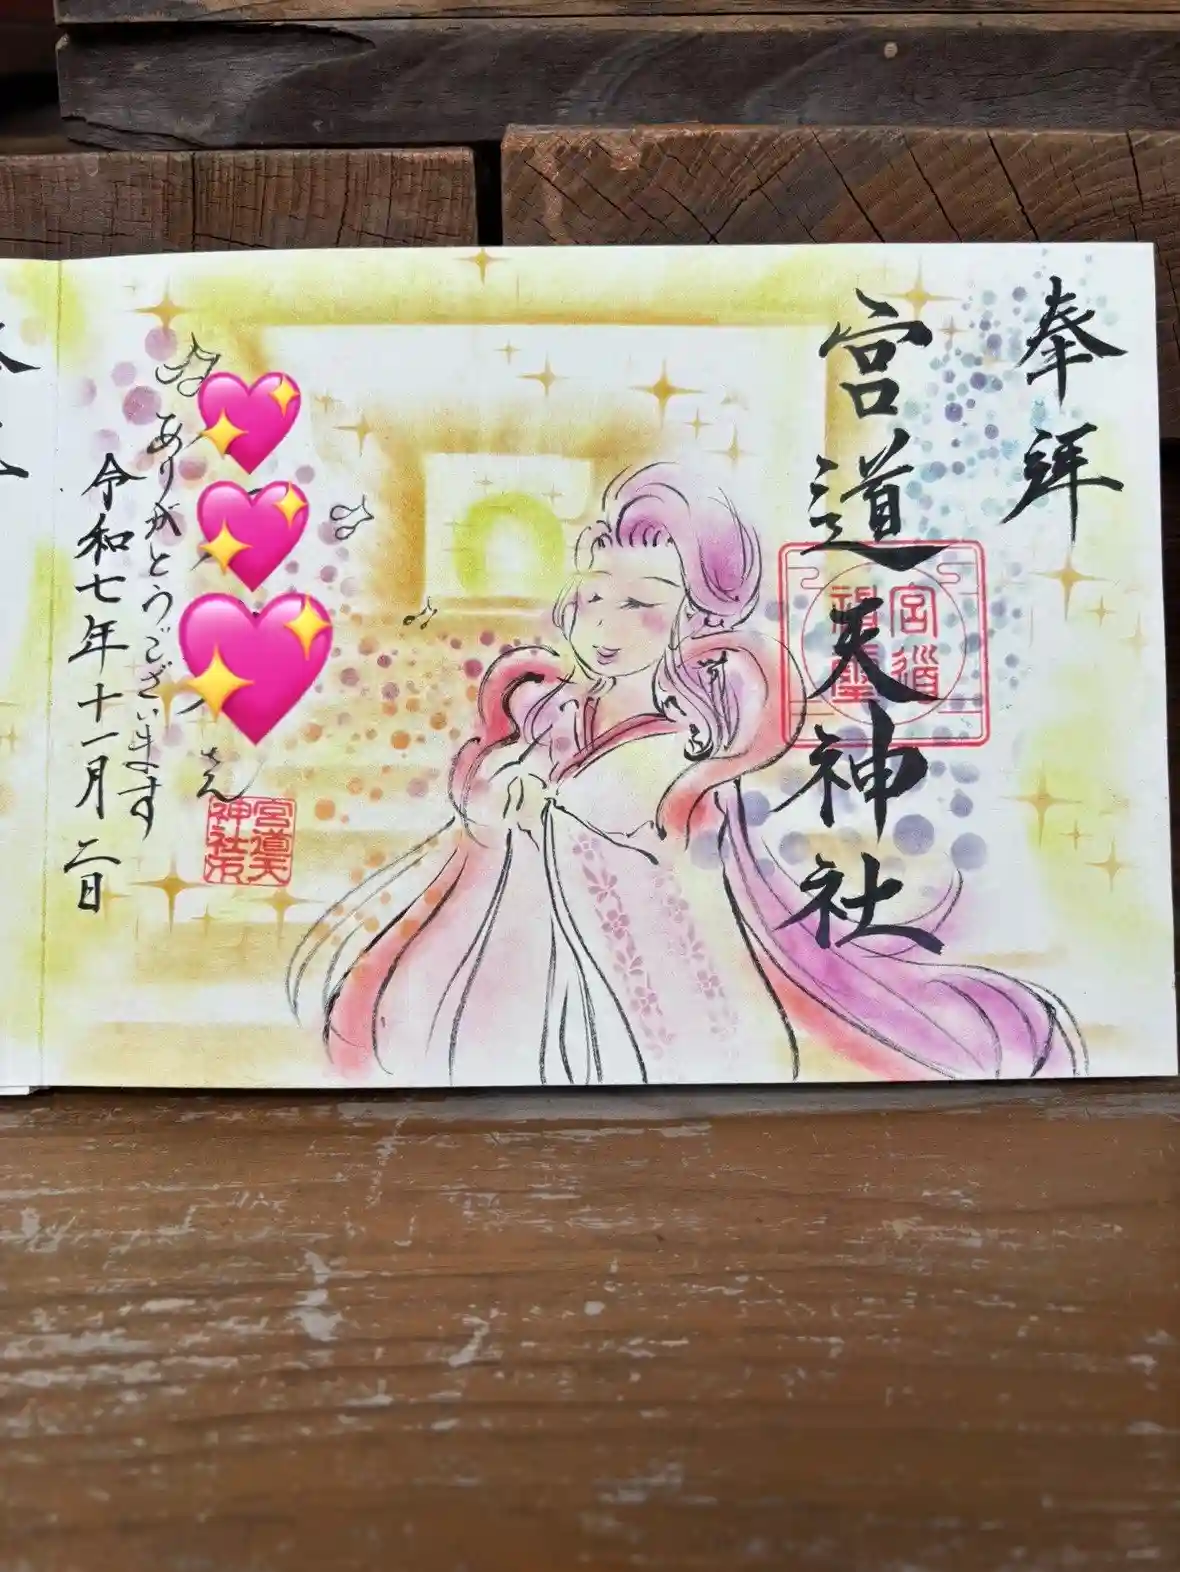 奉拝
宮道天神社
宮道
さん
宮道天
神社印
ありがとうございます
令和七年十一月二日